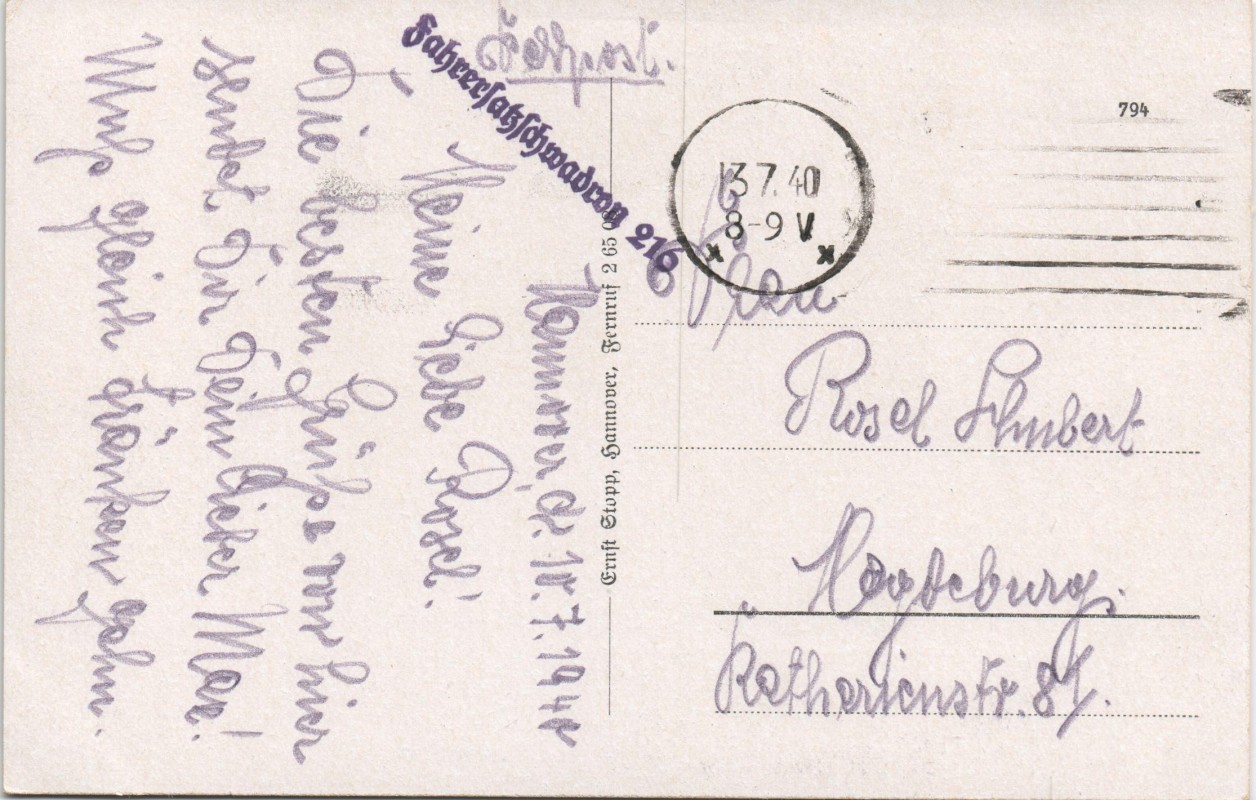 Feldpost.
Fahrersatzschwadron 216
794
13.7.40
8-9 V
Hannover, d. 10.7.1940
Meine liebe Rosel!
Die besten Grüße von hier
sendet Dir Dein lieber Max!
Muß gleich tränken gehn.
Ernst Stopp, Hannover, Fernruf 2 65
Frau
Rosel Schubert
Magdeburg.
Katharienstr. 8